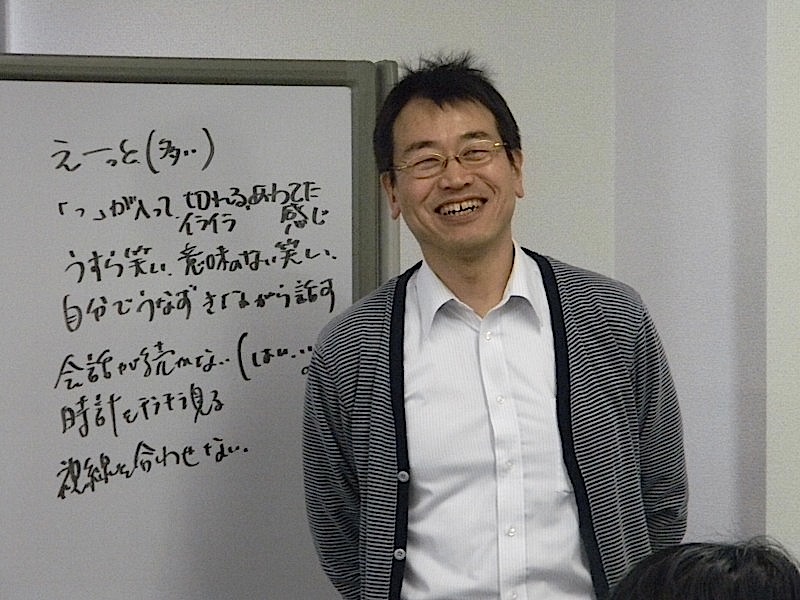 えーっと(多い)
「っ」が入って、切れる、あわてた
イライラ 感じ
うすら笑い、意味のない笑い、
自分でうなずきながら話す
会話が続かない(はい…。
時計をチラチラ見る
視線を合わせない。